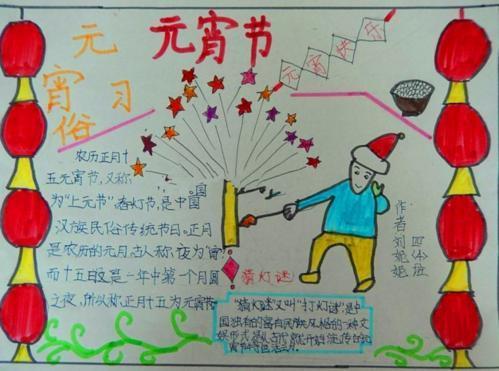 元宵节
元宵快乐
元宵习俗
农历正月十
五元宵节,又称
为“上元节”,春灯节,是中国
汉族民俗传统节日。正月
是农历的元月,古人称夜为“宵”
而十五日又是一年中第一个月圆
之夜,所以称正月十五为元宵节
猜灯谜
“猜灯谜”又叫“打灯谜”是中
国独有的富有民族风格的一种文
娱形式
作者刘妮妮